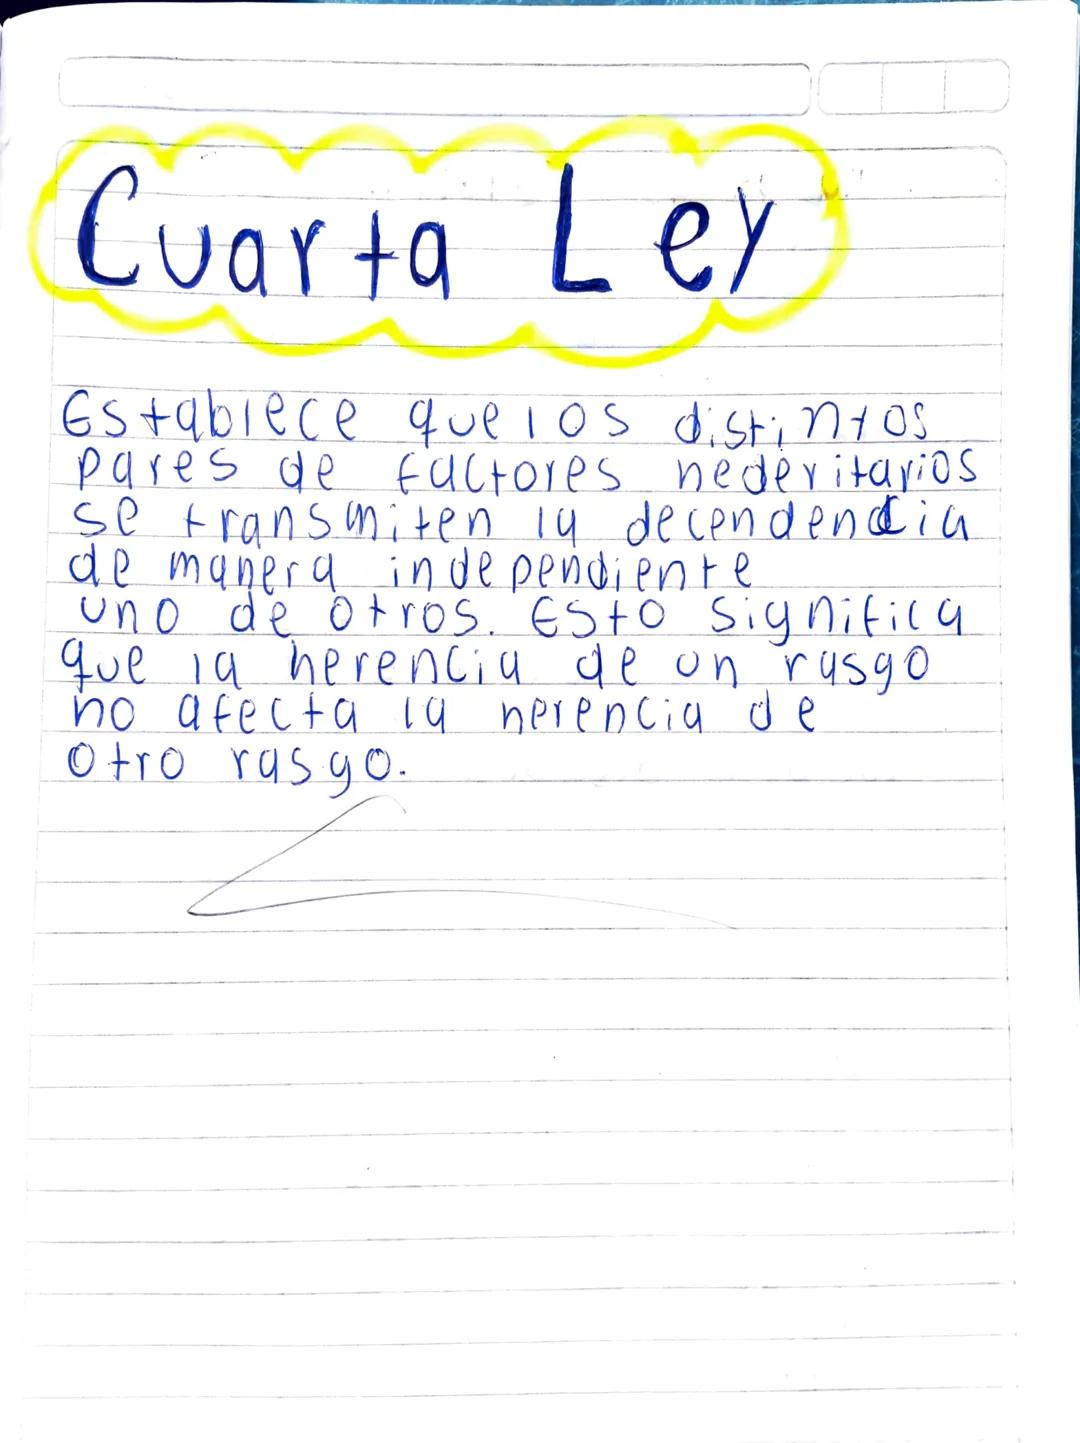 Cuarta Ley
Establece que los distintos
pares de factores hederitarios
se transmiten la decendencia
de manera independiente
uno de otros. Esto significa
que la herencia de un rasgo
no afecta la herencia de
otro rasgo.